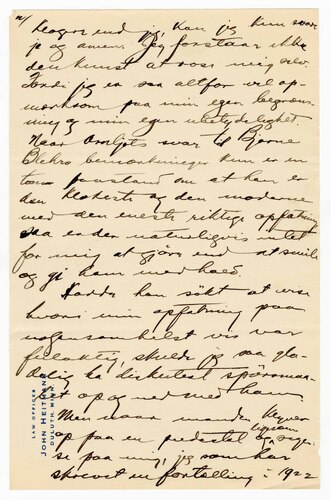 2/
klogere end jeg, kan jeg kun svare
jo og amen. Jeg forstaar ikke
den kunst at rose mig selv
fordi jeg er saa altfor vel op-
merksom paa min egen begræns-
ning og min egen ubetydelighet.
Naar svar til Bjarne
Blehrs bemerkninger kun er en
tom paastand om at han er
den klokeste og den moderne
med den eneste riktige opfatning
saa er der naturligvis intet
for mig at gjøre end at smile
og gi ham medhold.
Hadde han søkt at vise
hvori min opfatning paa
nogensomhelst vis var
feilaktig, skulde jeg saa gla-
delig ha diskuteret spørsmaa-
let op og ned med ham.
Men naar manden
op paa en piedestal og
se paa mig, jeg som har
skrevet en fortelling i 1922
LAW OFFICES
JOHN HEITMANN
DULUTH, MINN.